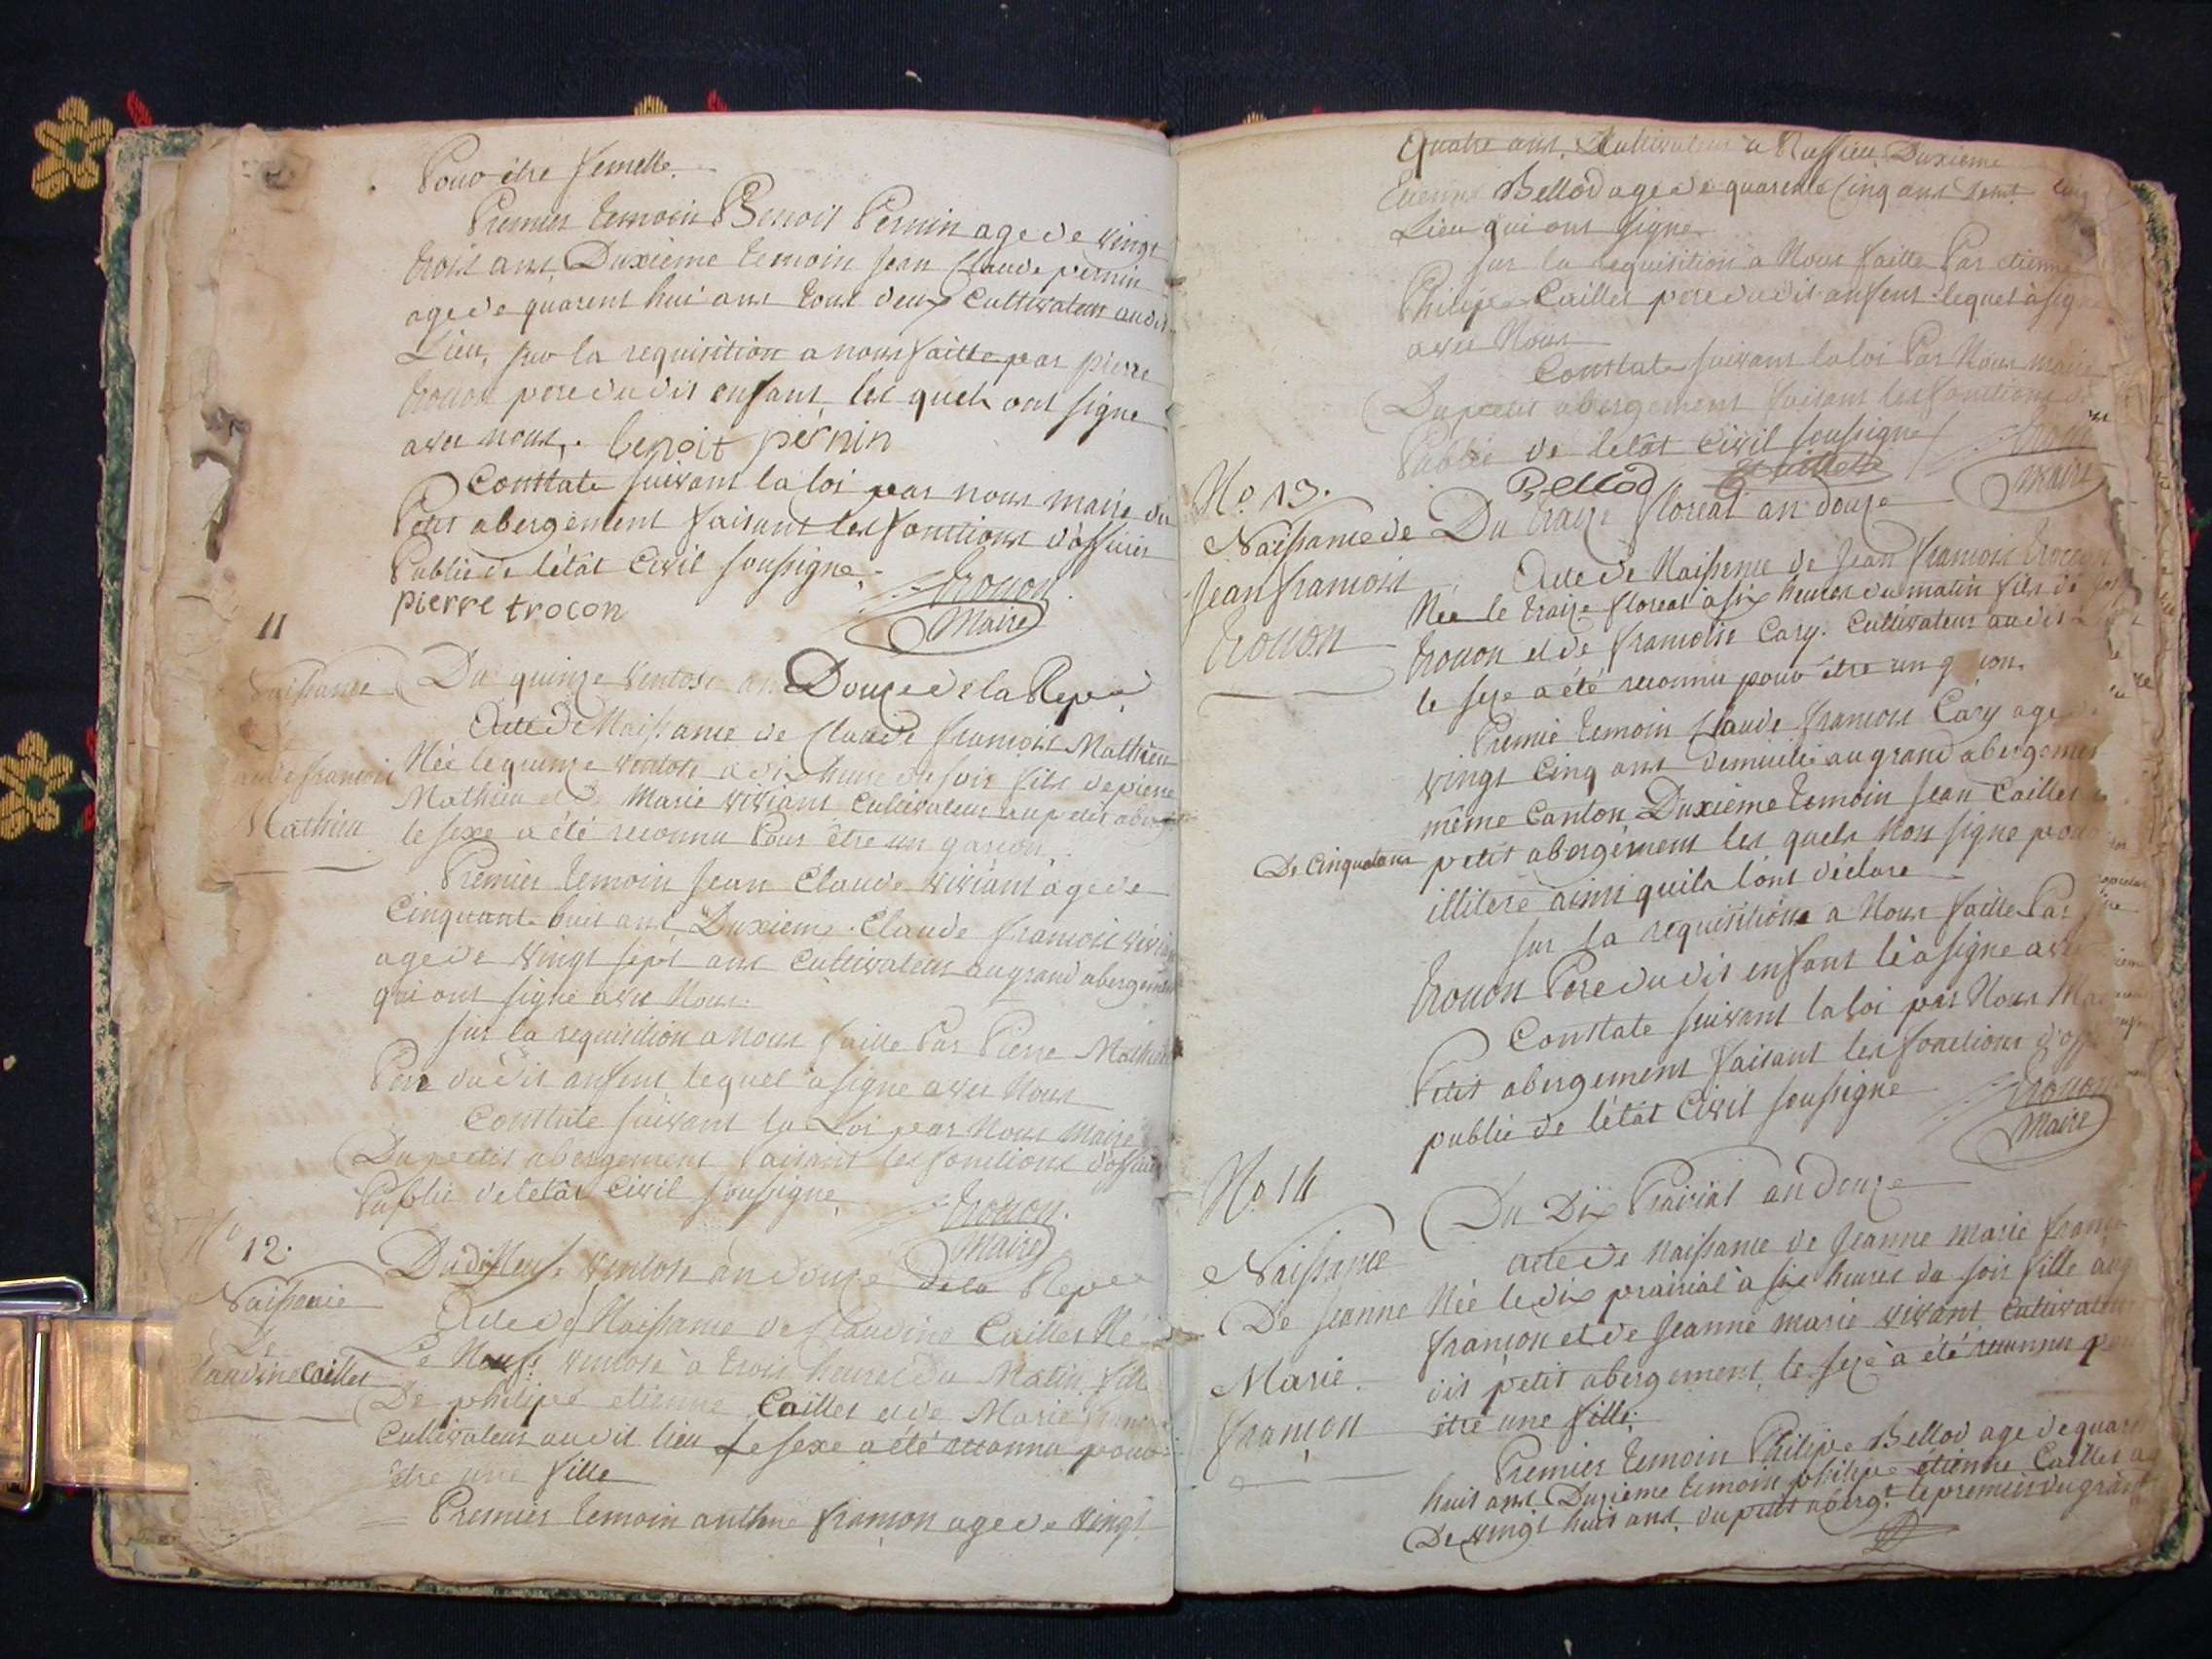 Pour être femelle.
Premier temoin Benoit Pernin age de vingt
trois ans, Duxième temoin Jean Claude pernin
age de quarent huit ans tous deux Cultivateur audit
Lieu, sur la requisition a nous faitte par pierre
trocon pere dudit enfant les quels ont signe
avec nous. benoit pernin
Constate suivant la loi par nous maire du
Petit abergement faisant les fonctions d'officier
Public de l'êtât Civil soussigne.
trocon
Maire
pierre trocon
11
Naissance
francois
Mathieu
Du quinze ventose an Douze de la Repe.
Acte de Naissance de Claude francois Mathieu
Née le quinze ventose a dix heure du soir fils de pierre
Mathieu et de Marie viviant Cultivateur au petit aberg
le sexe a été reconnu Pour être un garcon
Premier temoin Jean Claude viviant age de
Cinquant huit ans, Duxieme Claude francois
age de vingt sept ans Cultivateur au grand abergement
qui ont signe avec Nous.
sur la requisition a nous faitte Par Pierre Mathieu
Pere dudit anfent lequel a signe avec Nous
Constate suivant la Loi par Nous Maire
Du petit abergement faisant les fonctions d'officier
Public de letât Civil soussigne,
trocon.
Maire
No 12.
Naissance
De
Claudine Caillet
Du dixneuf ventose an douze De la Repe
Acte de Naissance de Claudine Caillet Né
Le Neuf ventose à trois heures du Matin, fille
De philipe etienne Caillet et de Marie
Cultivateur audit lieu Le sexe a été reconnu pour
être une fille
Premier temoin anthme françon age de vingt
Quatre ans, Cultivateur a Ruffieu, Duxieme
Etienne Bellod age de quarente Cinq ans
Lieu qui ont signe
sur la requisition à Nous faitte Par etienne
Philipe Caillet pere dudit anfent lequel à signe
avec Nous
Constate suivant la loi Par Nous maire
Du petit abergement faisant les fonctions
Public de letât Civil soussigne
trocon
Maire
Bellod
No. 13.
Naissance de
Jean francois
trocon
Du traize floreal an douze
Acte de Naissense de Jean francois trocon
Née le traize floreal à six heures du matin fils de
trocon et de francoise Cary. Cultivateur audit
le sexe a été reconnu pour être un garçon.
Premie temoin Claude francois Cary age de
vingt Cinq ans demicilie au grand abergement
même Canton Duxième temoin Jean Caillet
De Cinquetans
petit abergement les quels Non signe pour
illiteré ainsi quils lont déclare
sur la requisitions a Nous faitte Par
trocon Pere dudit enfant lé a signe avec
Constate suivant la loi par Nous Maire
Petit abergement faisant les fonctions d'officier
public de lêtât Civil soussigne
trocon
Maire
No. 14
Naissance
De Jeanne
Marie
françon
Du Dix Prairial an Douze
acte de Naissance de Jeanne Marie
Née le dix prairial à six heures du soir fille
françon et de Jeanne Marie vivant Cultivateur
dit petit abergement, le sexe à été reconnu pour
être une fille.
Premier temoin Philipe Bellod age de
huit ans Duxieme temoin philipe etienne Caillet
De vingt huit ans. du petit aberg.t le premier du grand